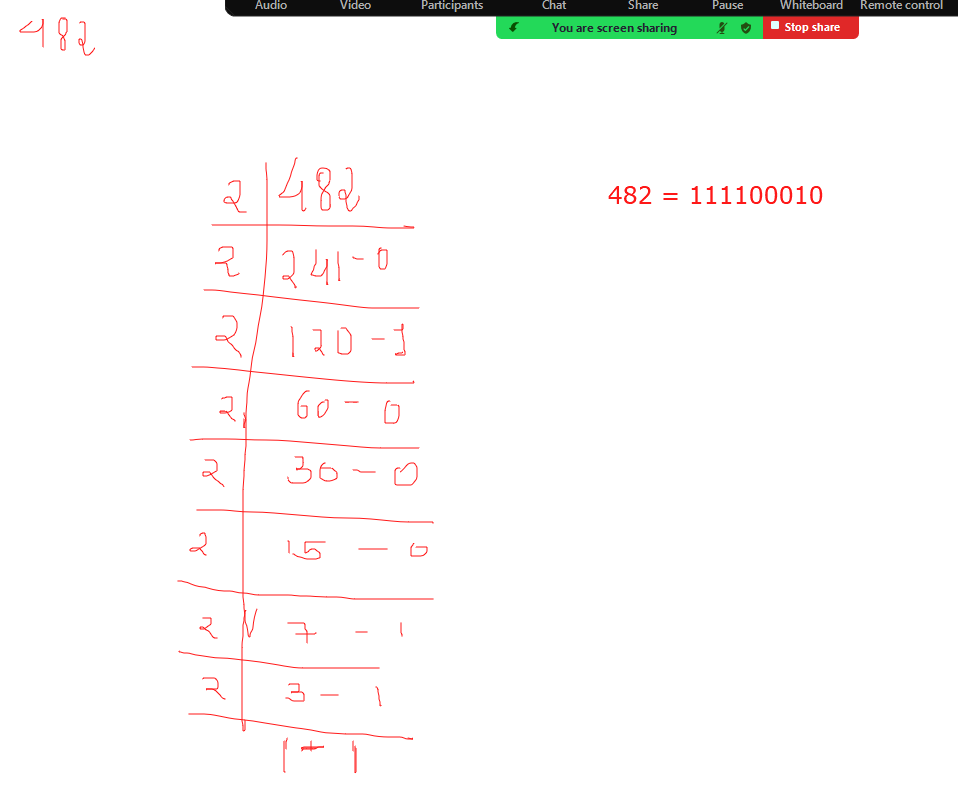 Audio Video Participants Chat Share Pause Whiteboard Remote control
You are screen sharing Stop share
482
2 482
482 = 111100010
2 241 - 0
2 120 - 1
2 60 - 0
2 30 - 0
2 15 - 0
2 7 - 1
2 3 - 1
1 - 1